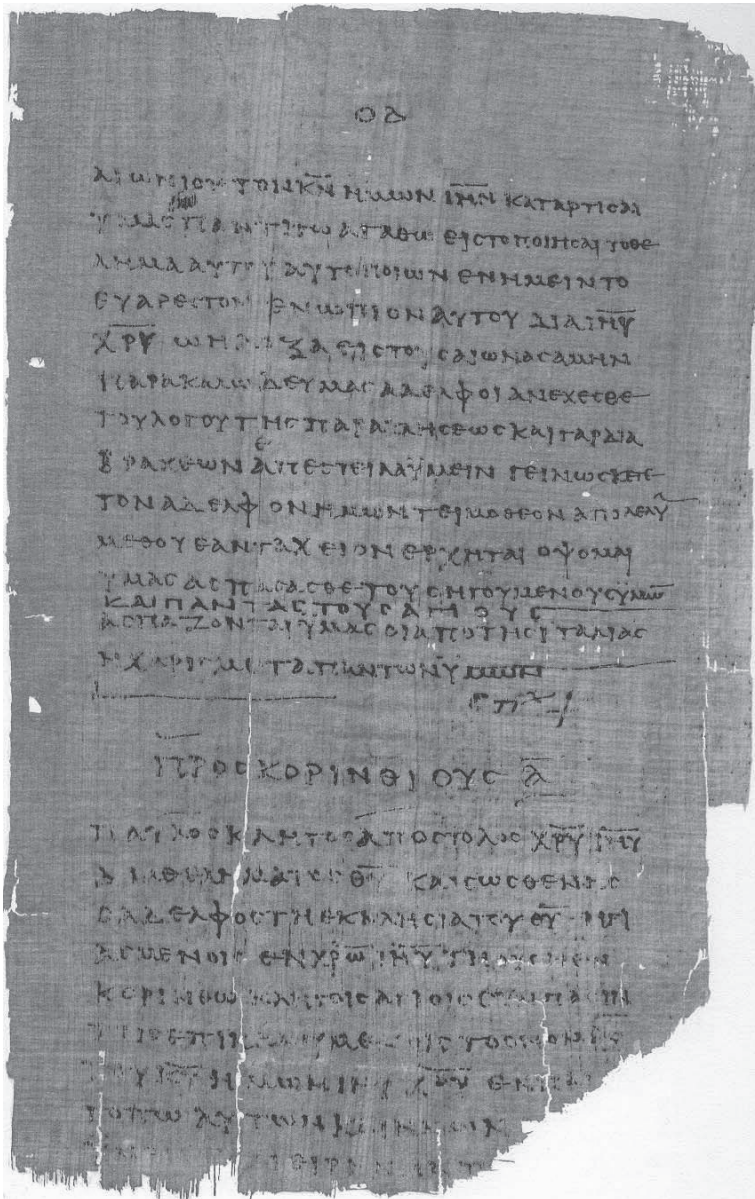 ΟΔ
ΑΙΩΝΙΟΥ ΤΟΝ Κ̅Ν̅ ΗΜΩΝ Ι̅Η̅Ν̅ ΚΑΤΑΡΤΙCΑΙ
ΥΜΑC ΠΑΝΤΙ ΤΩ ΑΓΑΘΩ ΕΙC ΤΟ ΠΟΙΗCΑΙ ΤΟ ΘΕ
ΛΗΜΑ ΑΥΤΟΥ ΑΥΤΟ ΠΟΙΩΝ ΕΝ ΗΜΕΙΝ ΤΟ
ΕΥΑΡΕCΤΟΝ ΕΝΩΠΙΟΝ ΑΥΤΟΥ ΔΙΑ Ι̅Η̅Υ̅
Χ̅Ρ̅Υ̅ Ω Η ΔΟΞΑ ΕΙC ΤΟΥC ΑΙΩΝΑC ΑΜΗΝ
ΠΑΡΑΚΑΛΩ ΔΕ ΥΜΑC ΑΔΕΛΦΟΙ ΑΝΕΧΕCΘΕ
ΤΟΥ ΛΟΓΟΥ ΤΗC ΠΑΡΑΚΛΗCΕΩC ΚΑΙ ΓΑΡ ΔΙΑ
ΒΡΑΧΕΩΝ ΑΠΕCΤΕΙΛΑ ΥΜΕΙΝ ΓΕΙΝΩCΚΕΤΕ
ΤΟΝ ΑΔΕΛΦΟΝ ΗΜΩΝ ΤΕΙΜΟΘΕΟΝ ΑΠΟΛΕΛΥ
ΜΕΘ ΟΥ ΕΑΝ ΤΑΧΕΙΟΝ ΕΡΧΗΤΑΙ ΟΨΟΜΑΙ
ΥΜΑC ΑCΠΑCΑCΘΕ ΤΟΥC ΗΓΟΥΜΕΝΟΥC ΥΜΩ̅
ΚΑΙ ΠΑΝΤΑC ΤΟΥC ΑΓΙΟΥC
ΑCΠΑΖΟΝΤΑΙ ΥΜΑC ΟΙ ΑΠΟ ΤΗC ΙΤΑΛΙΑC
Η ΧΑΡΙC ΜΕΤΑ ΠΑΝΤΩΝ ΥΜΩΝ
ΠΡΟC ΚΟΡΙΝΘΙΟΥC Α̅
ΠΑΥΛΟC ΚΛΗΤΟC ΑΠΟCΤΟΛΟC Χ̅Ρ̅Υ̅ Ι̅Η̅Υ̅
ΔΙΑ ΘΕΛΗΜΑΤΟC Θ̅Υ̅ ΚΑΙ CΩCΘΕΝΗC
Ο ΑΔΕΛΦΟC ΤΗ ΕΚΚΛΗCΙΑ ΤΟΥ Θ̅Υ̅ ΗΓΙ
ΑCΜΕΝΟΙC ΕΝ Χ̅Ρ̅Ω̅ Ι̅Η̅Υ̅ ΤΗ ΟΥCΗ ΕΝ
ΚΟΡΙΝΘΩ ΚΛΗΤΟΙC ΑΓΙΟΙC CΥΝ ΠΑCΙΝ
ΤΟΙC ΕΠΙΚΑΛΟΥΜΕΝΟΙC ΤΟ ΟΝΟΜΑ
ΤΟΥ Κ̅Υ̅ ΗΜΩΝ Ι̅Η̅Υ̅ Χ̅Ρ̅Υ̅ ΕΝ
ΤΟΠΩ ΑΥΤΩΝ